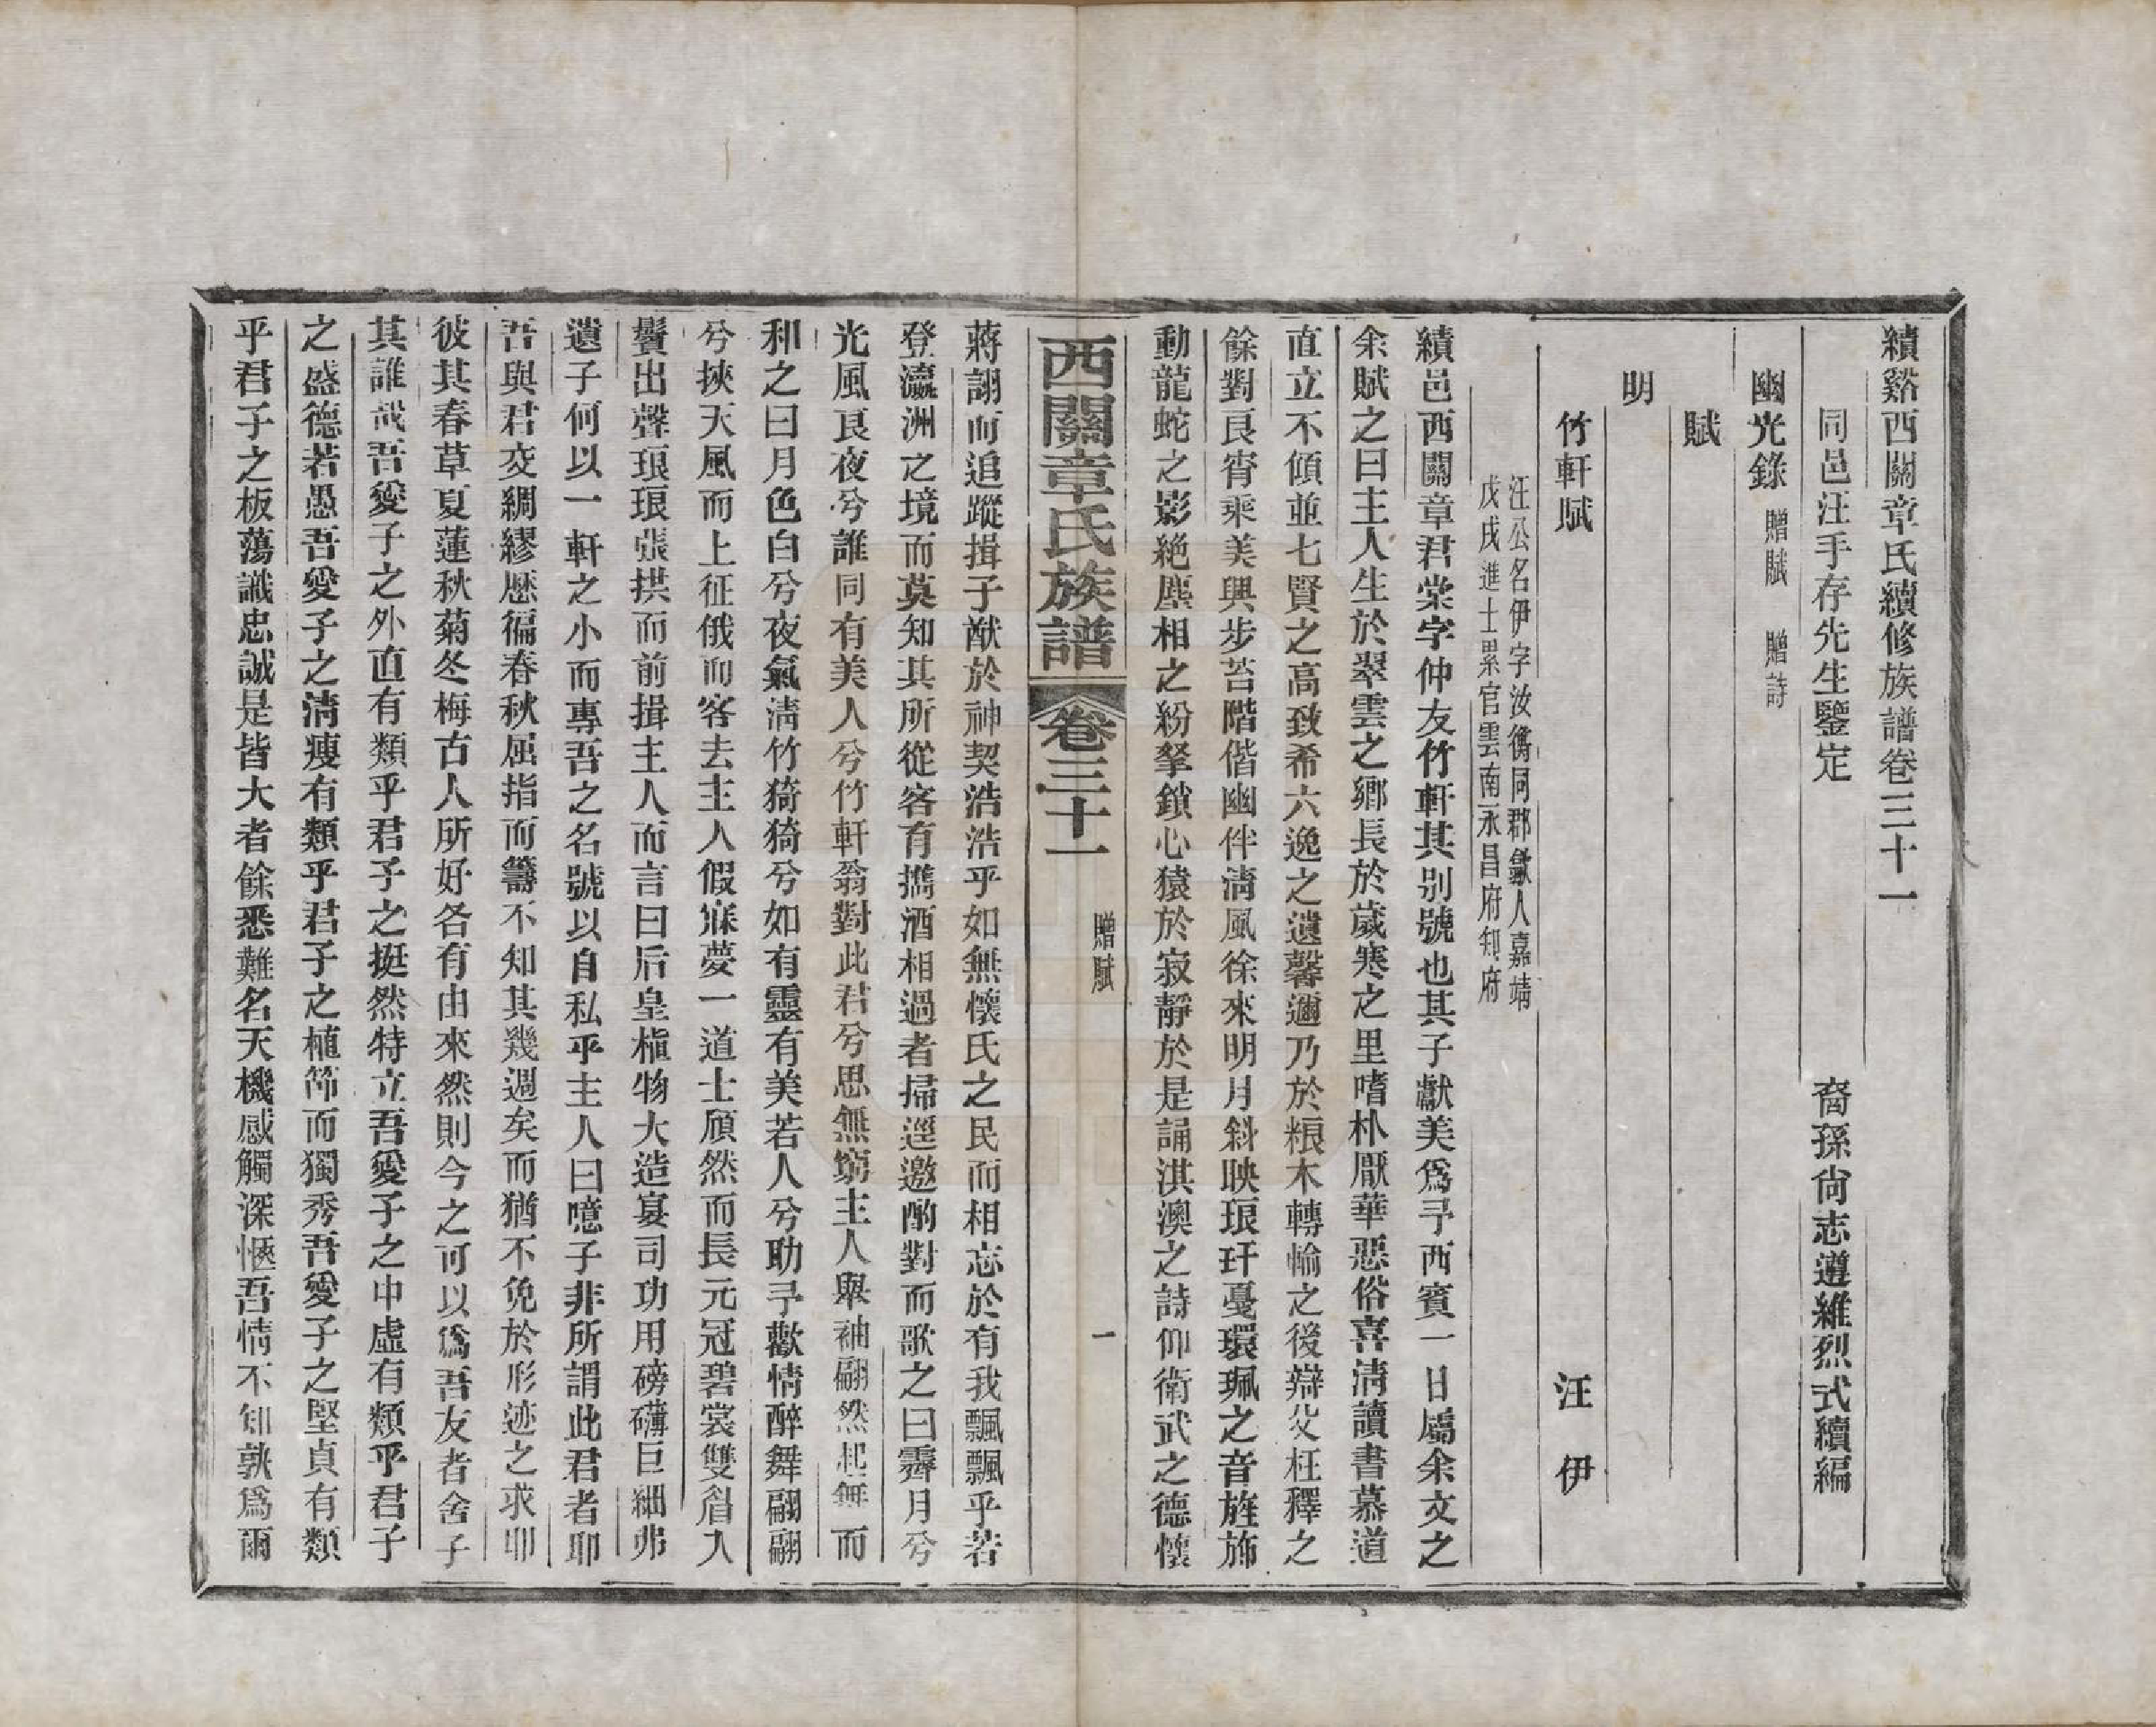 績谿西關章氏續修族譜卷三十一
同邑汪手存先生鑒定　裔孫尙志遵維烈式續編
幽光錄 贈賦 贈詩
賦
明
竹軒賦　汪伊
汪公名伊字汝衡同郡歙人嘉靖
戊戌進士累官雲南永昌府知府
績邑西關章君棠字仲友竹軒其別號也其子獻美爲予西賓一日屬余文之
余賦之曰主人生於翠雲之鄉長於歲寒之里嗜朴厭華惡俗喜淸讀書慕道
直立不傾並七賢之高致希六逸之遺馨邇乃於粮木轉輸之後辯父枉釋之
餘對良宵乘美興步苔階偕幽伴淸風徐來明月斜映琅玕戞環珮之音旌斾
動龍蛇之影絶塵相之紛拏鎖心猿於寂靜於是誦淇澳之詩仰衛武之德懷
西關章氏族譜 卷三十一 贈賦 一
蔣詡而追蹤揖子猷於神契浩浩乎如無懷氏之民而相忘於有我飄飄乎若
登瀛洲之境而莫知其所從客有擕酒相過者掃逕邀酌對而歌之曰霽月兮
光風良夜兮誰同有美人兮竹軒翁對此君兮思無窮主人舉袖翩然起舞而
和之曰月色白兮夜氣淸竹猗猗兮如有靈有美若人兮助予歡情醉舞翩翩
兮挾天風而上征俄而客去主人假寐夢一道士頎然而長元冠碧裳雙眉入
鬢出聲琅琅張拱而前揖主人而言曰后皇植物大造宴司功用磅礴巨細弗
遺子何以一軒之小而專吾之名號以自私乎主人曰噫子非所謂此君者耶
吾與君交綢繆歷徧春秋屈指而籌不知其幾週矣而猶不免於形迹之求耶
彼其春草夏蓮秋菊冬梅古人所好各有由來然則今之可以爲吾友者舍子
其誰哉吾愛子之外直有類乎君子之挺然特立吾愛子之中虛有類乎君子
之盛德若愚吾愛子之淸瘦有類乎君子之植節而獨秀吾愛子之堅貞有類
乎君子之板蕩識忠誠是皆大者餘悉難名天機感觸深愜吾情不知孰爲爾